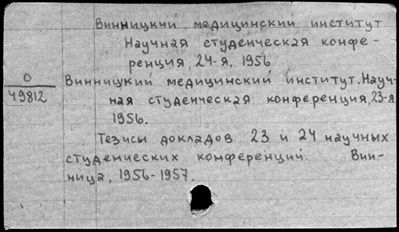 Винницкий медицинский институт
Научная студенческая конфе-
ренция, 24-я. 1956
О
49812
Винницкий медицинский институт. Науч-
ная студенческая конференция, 23-я.
1956.
Тезисы докладов 23 и 24 научных
студенческих конференций. Вин-
ница, 1956-1957.